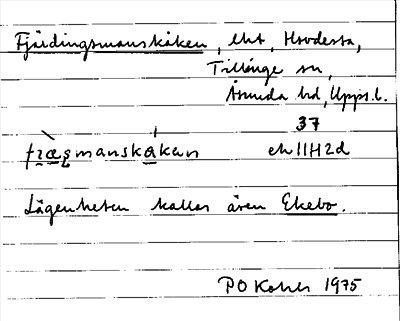 Fjärdingsmanskåken, lht, Hovdesta,
Tillinge sn,
Åsunda hd, Upps.l.
37
ek 11H2d
Lägenheten kallas även Ekebo.
P O Kohls 1975